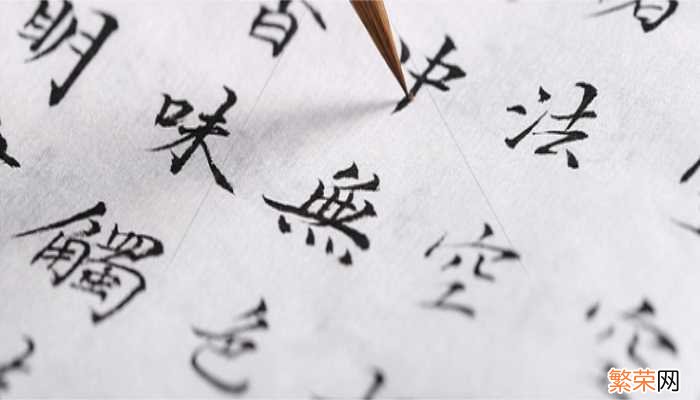 空
法空
中無色
香味觸
明
繁荣网